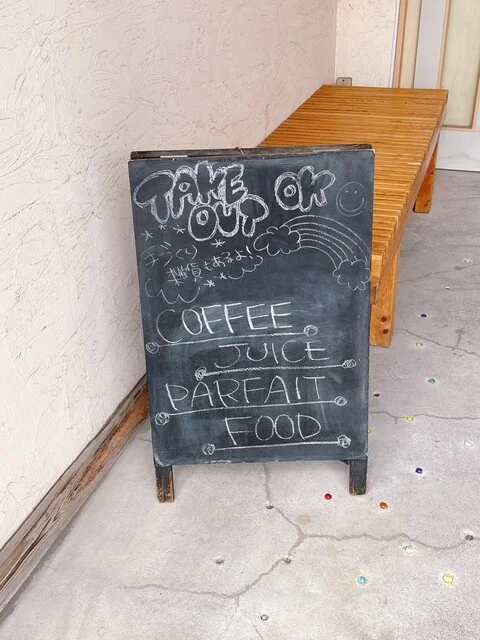 TAKE OUT OK
手づくり
雑貨もあるよ!
COFFEE
JUICE
PARFAIT
FOOD